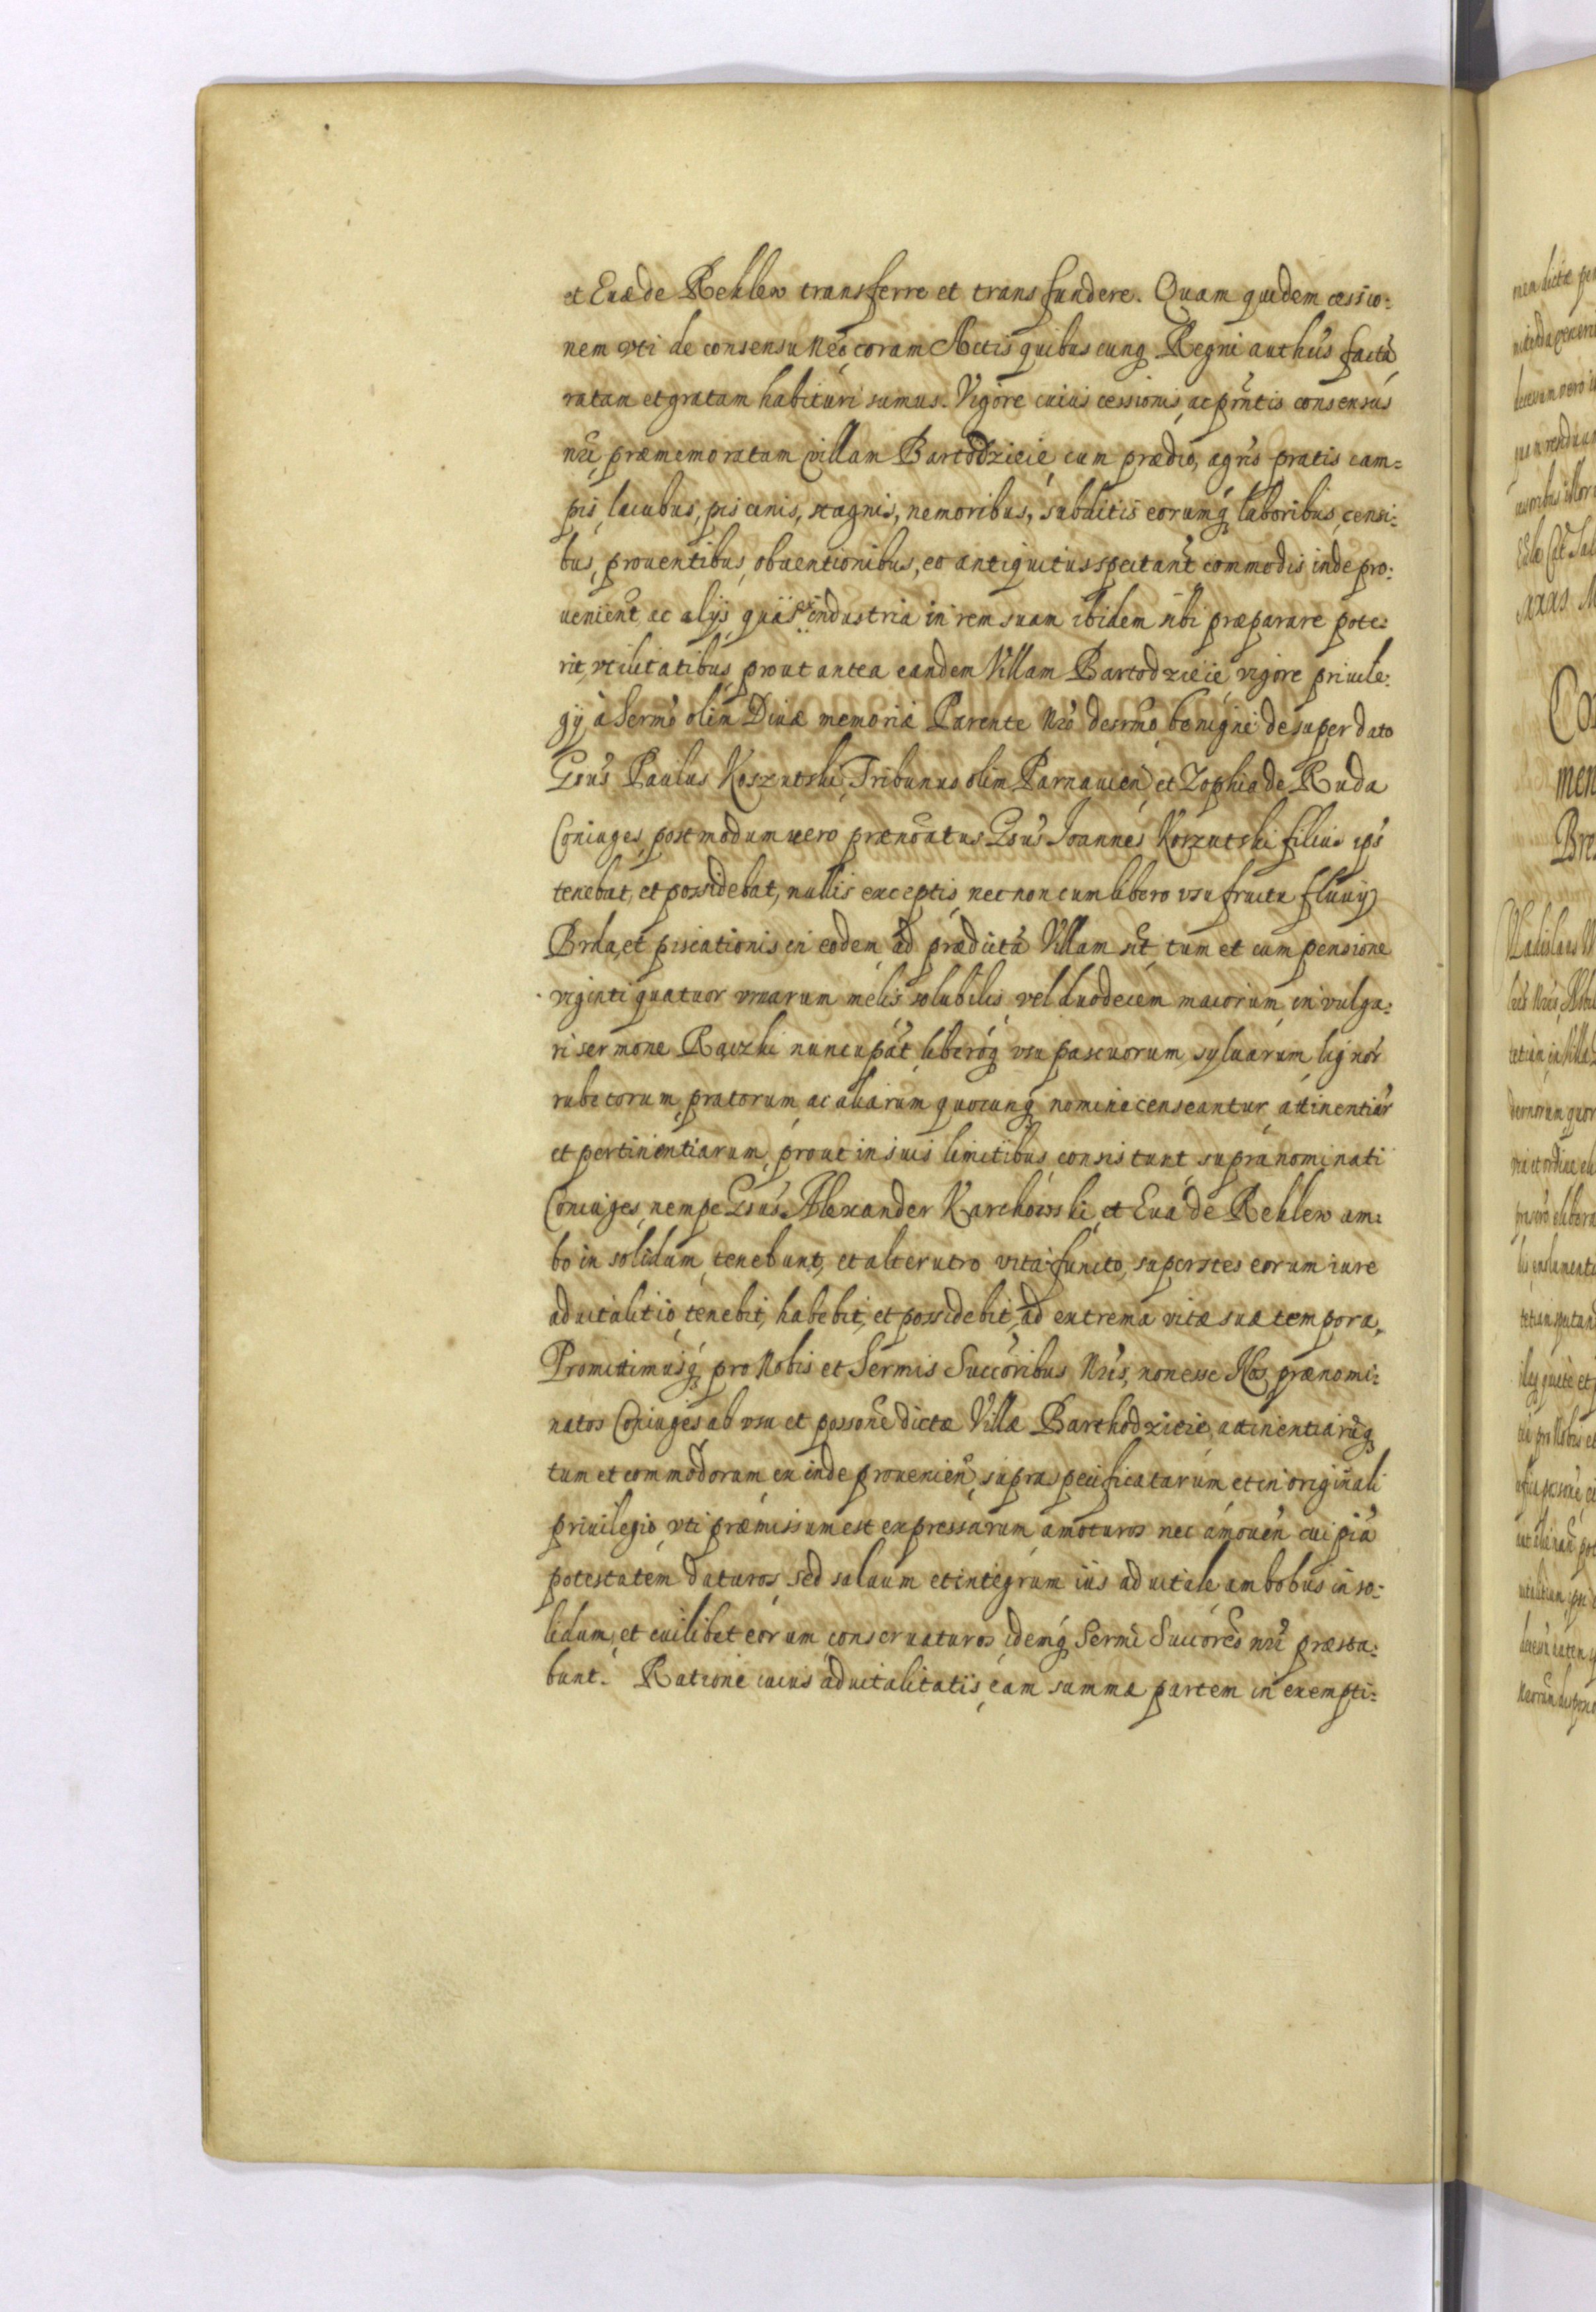 et Euæ de Rehlew transferre et transfundere. Quam quidem cessio:
nem vti de consensu Nro coram Actis quibuscunq Regni authcis factã
ratam et gratam habituri sumus. Vigore cuius cessionis ac prntis consensus
nri præmemoratam villam Bartodzieie cum prædio, agris pratis cam=
pis, lacubus, piscinis, stagnis, nemoribus, subditis eorumq laboribus, censi:
bus, prouentibus, obuentionibus, eo antiquitus spectant commodis inde pro:
uenient ac alijs quas ex industria in rem suam ibidem sibi præparare pote:
rit, vtilitatibus, prout antea eandem Villam Bartodzieie vigore priuile:
gij à Sermo olim Diuæ memoriæ Parente Nro desrmo benigne desuper dato
Gsus Paulus Koszutski, Tribunus olim Parnauien et Zophia de Ruda
Coniuges, postmodum uero prænoatus Gsus Joannes Koszutski filius ips
tenebat, et possidebat, nullis exceptis, nec non cum libero vsufructu fluuij
Brda, et piscationis in eodem ad prædictã Villam sit, tum et cum pensione
viginti quatuor vrnarum melis solubilis, vel duodecem maiorum, in vulga:
ri sermone Rączki nuncupãt, liberóq vsu pascuorum, syluarum, lignor
rubetorum, pratorum, ac aliarum quocunq nomine censeantur, attinentiar
et pertinentiarum, prout in suis limitibus consistunt, supranominati
Coniuges, nempe Gsus Alexander Karchowski, et Eua de Rehlew am:
bo in solidum, tenebunt, et alterutro vita functo, superstes eorum iure
aduitalitio, tenebit, habebit, et possidebit, ad extrema vitæ suæ tempora.
Promittimusq, pro Nobis et Sermis Succoribus Nris, non esse Nos prænomi:
natos Coniuges, ab vsu et possone dictæ Villæ Barthodzieie, attinentiarũq
tum et commodorum, ex inde prouenien, supra specificatarum, et in originali
priuilegio vti præmissum est expressarum, amoturos nec amouen cuipiã
potestatem daturos, sed saluum et integrum ius aduitale ambobus in so:
lidum, et cuilibet eorum conseruaturos, idemq Sermi Succores nri præsta:
bunt. Ratione cuius aduitalitatis, eam summæ partem in exempti: